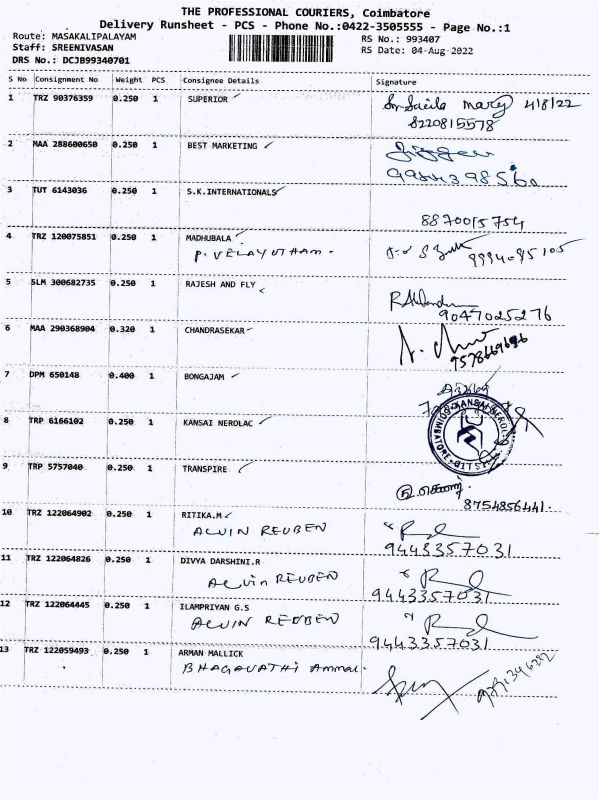 THE PROFESSIONAL COURIERS, Coimbatore
Delivery Runsheet - PCS - Phone No.:0422-3505555 - Page No.:1
Route: MASAKALIPALAYAM RS No.: 993407
Staff: SREENIVASAN RS Date: 04-Aug-2022
DRS No.: DCJB99340701
S No Consignment No Weight PCS Consignee Details Signature
1 TRZ 90376359 0.250 1 SUPERIOR Mary 4/8/22
8220815578
2 MAA 288600650 0.250 1 BEST MARKETING
3 TUT 6143036 0.250 1 S.K.INTERNATIONALS
8870015754
4 TRZ 120075851 0.250 1 MADHUBALA
P. VELAYUTHAM. 9994095105
5 SLM 300682735 0.250 1 RAJESH AND FLY
9047025276
6 MAA 290368904 0.320 1 CHANDRASEKAR
7 DPM 650148 0.400 1 BONGAJAM
8 TRP 6166102 0.250 1 KANSAI NEROLAC
9 TRP 5757040 0.250 1 TRANSPIRE
8754856441.
10 TRZ 122064902 0.250 1 RITIKA.M
ALVIN REUBEN 9443357031
11 TRZ 122064826 0.250 1 DIVYA DARSHINI.R
ALVIN REUBEN 9443357031
12 TRZ 122064445 0.250 1 ILAMPRIYAN G.S
ALVIN REUBEN 9443357031
13 TRZ 122059493 0.250 1 ARMAN MALLICK
BHAGAVATHI Ammal.